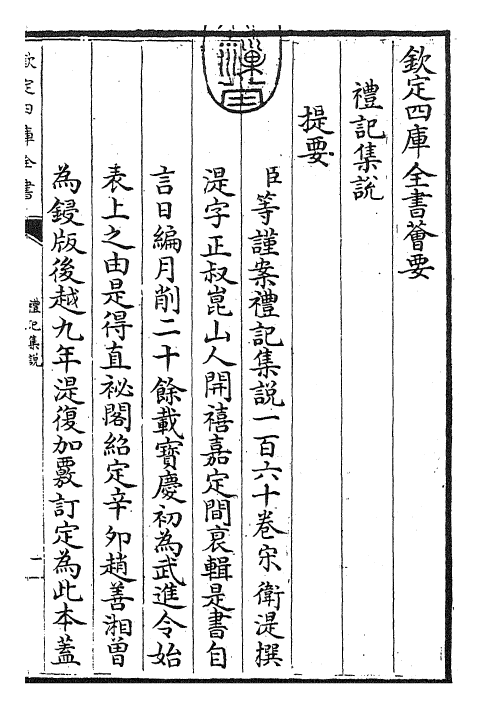 欽定四庫全書薈要
禮記集說
提要
臣等謹案禮記集說一百六十卷宋衛湜撰
湜字正叔崑山人開禧嘉定間裒輯是書自
言日編月削二十餘載寶慶初為武進令始
表上之由是得直祕閣紹定辛卯趙善湘曽
為鋟版後越九年湜復加覈訂定為此本蓋
欽定四庫全書
禮記集說